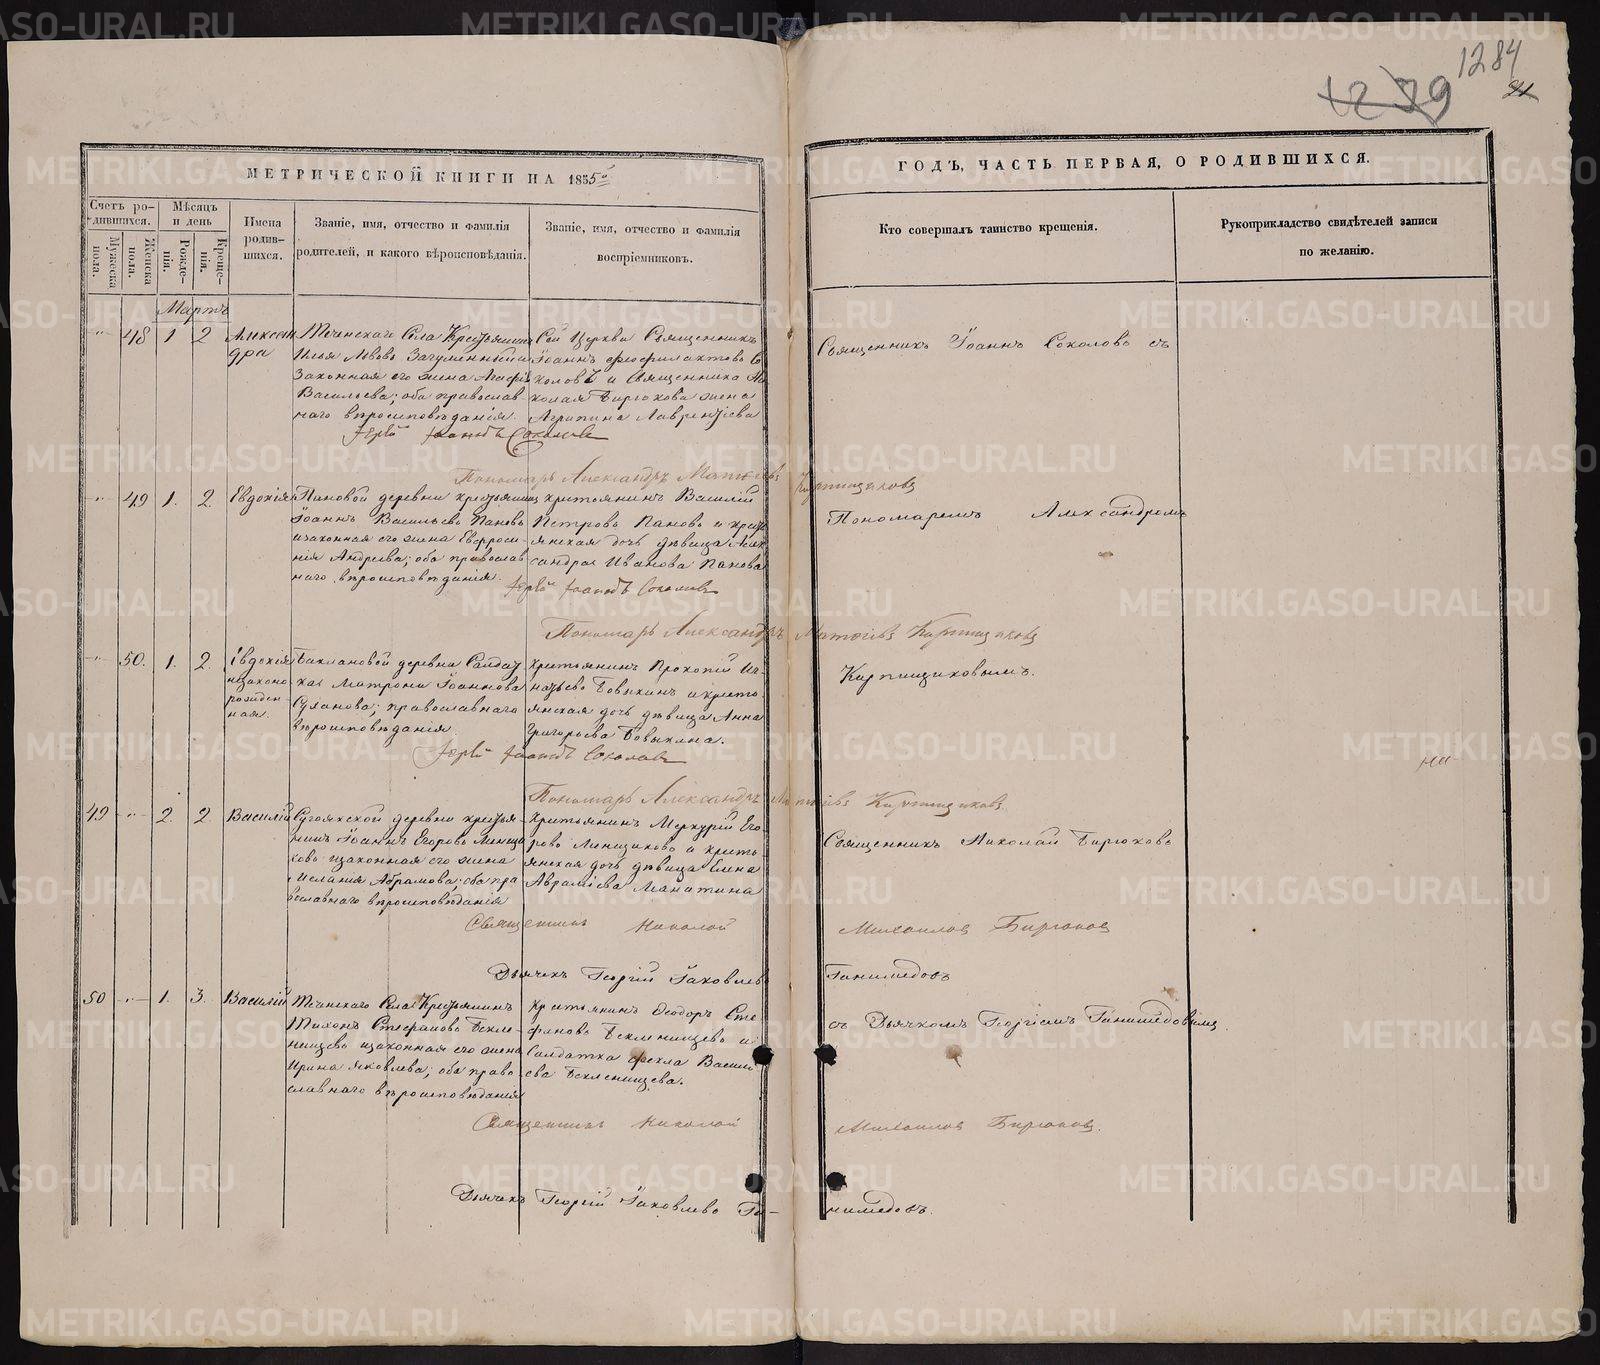 1284
1279
МЕТРИЧЕСКОЙ КНИГИ НА 1855го
ГОДЪ, ЧАСТЬ ПЕРВАЯ, О РОДИВШИХСЯ.
Счетъ ро-
дившихся.
Мужеска
пола.
Женска
пола.
Мѣсяцъ
и день
Рожде-
нія.
Креще-
нія.
Имена
родив-
шихся.
Званіе, имя, отчество и фамилія
родителей, и какого вѣроисповѣданія.
Званіе, имя, отчество и фамилія
воспріемниковъ.
Кто совершалъ таинство крещенія.
Рукоприкладство свидѣтелей записи
по желанію.
Мартъ
48 1 2
Алексан
дра
Теченскаго Села Крестьянинъ
Илья Львовъ Загуменный и
Законная его жена Агафья
Васильева; оба православ-
наго вѣроисповѣданія.
Сей Церкви Священникъ
Іоаннъ Феофилактовъ Со
коловъ и Священника Ни
колая Бирюкова жена
Агрипина Лаврентіева
Священникъ Іоаннъ Соколовъ съ
Іерей Іоаннъ Соколовъ
Пономарь Александръ Матвѣевъ Карпищиковъ
49 1. 2.
Евдокія
Пановой деревни крестьянинъ
Іоаннъ Васильевъ Пановъ
и законная его жена Евфроси-
нія Андреева; оба православ-
наго вѣроисповѣданія.
крестьянинъ Василій
Петровъ Пановъ и крест
янская дочь дѣвица Алек
сандра Иванова Панова
Пономаремъ Александромъ
Іерей Іоаннъ Соколовъ
Пономарь Александръ Матвѣевъ Карпищиковъ
50. 1. 2.
Евдокія
незаконо
рожден
ная.
Баклановой деревни Солдат
кая Матрона Іоаннова
Суханова; православнаго
вѣроисповѣданія
Крестьянинъ Прокопій Иг
натьевъ Бовыкинъ и кресть
янская дочь дѣвица Анна
Григорьева Бовыкина.
Карпищиковымъ.
Іерей Іоаннъ Соколовъ
Пономарь Александръ Матвѣевъ Карпищиковъ.
49 2. 2.
Василій
Сугоякской деревни крестья-
нинъ Іоаннъ Егоровъ
и законная его жена
Абрамова; оба пра
вославнаго вѣроисповѣданія
Крестьянинъ Меркурій Его-
ровъ и кресть
янская дочь дѣвица Елена
Авраміева
Священникъ Николай Бирюковъ
Священникъ Николай Михаиловъ Бирюковъ
Дьячекъ Георгій Іаковлевъ Ганимедовъ
50 1. 3.
Василій
Теченскаго Села Крестьянинъ
Тихонъ Стефановъ Бекле-
нищевъ и законная его жена
Ирина Яковлева; оба право
славнаго вѣроисповѣданія
Крестьянинъ Ѳеодоръ Сте
фановъ Бекленищевъ и
Солдатка Фекла Василь
ева Бекленищева.
съ Дьячкомъ Георгіемъ Ганимедовымъ
Священникъ Николай Михаиловъ Бирюковъ.
Дьячекъ Георгій Іаковлевъ Га-
нимедовъ.
METRIKI.GASO-URAL.RU